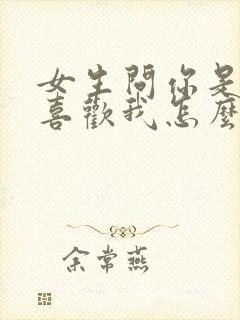 女生問你是
喜歡我怎麼
余常燕